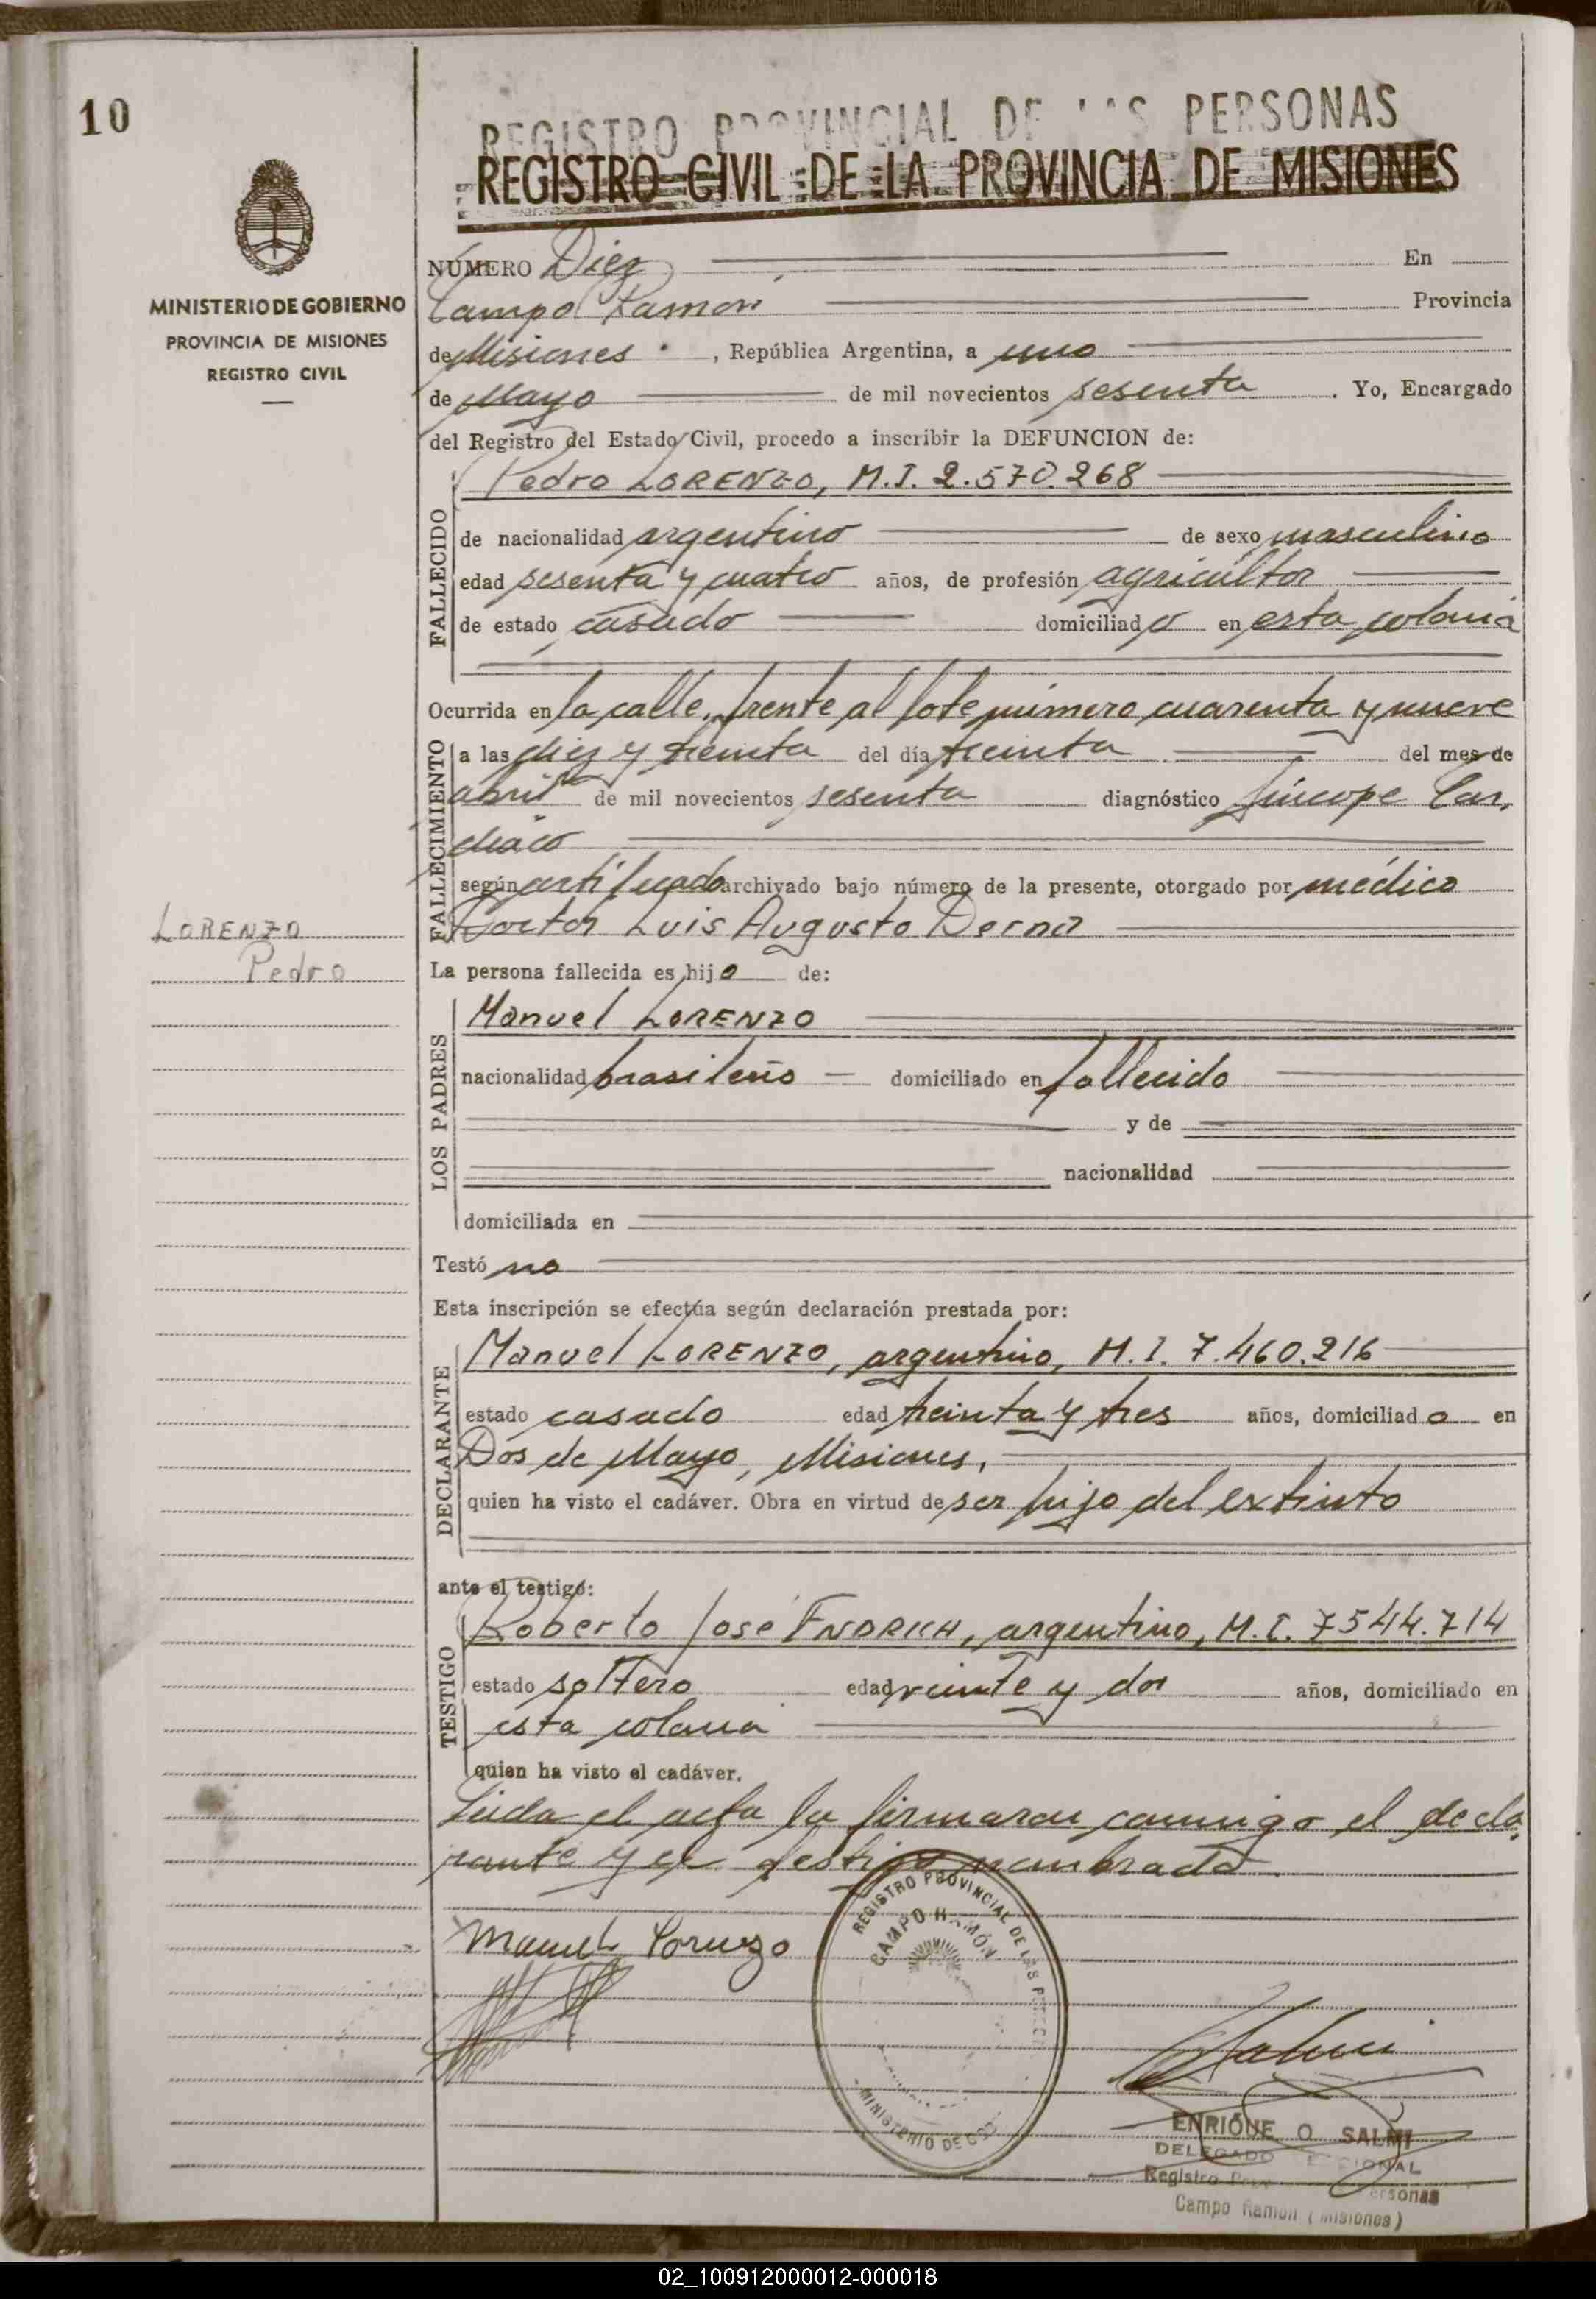 10
REGISTRO PROVINCIAL DE LAS PERSONAS
REGISTRO CIVIL DE LA PROVINCIA DE MISIONES
MINISTERIO DE GOBIERNO
PROVINCIA DE MISIONES
REGISTRO CIVIL
NÚMERO Diez En
Campo Ramón Provincia
de Misiones , República Argentina, a uno
de Mayo de mil novecientos sesenta . Yo, Encargado
del Registro del Estado Civil, procedo a inscribir la DEFUNCION de:
FALLECIDO
Pedro LORENZO, M.I. 2.570.268
de nacionalidad argentino de sexo masculino
edad sesenta y cuatro años, de profesión agricultor
de estado casado domiciliado en esta colonia
Ocurrida en la calle, frente al lote número cuarenta y nueve
FALLECIMIENTO
a las diez y treinta del día treinta del mes de
abril de mil novecientos sesenta diagnóstico Síncope Car-
díaco
según certificado archivado bajo número de la presente, otorgado por médico
Doctor Luis Augusto Derna
LORENZO
Pedro
La persona fallecida es hijo de:
LOS PADRES
Manuel LORENZO
nacionalidad brasileño domiciliado en fallecido
y de
nacionalidad
domiciliada en
Testó no
Esta inscripción se efectúa según declaración prestada por:
DECLARANTE
Manuel LORENZO, argentino, M.I. 7.460.216
estado casado edad treinta y tres años, domiciliado en
Dos de Mayo, Misiones,
quien ha visto el cadáver. Obra en virtud de ser hijo del extinto
ante el testigo:
TESTIGO
Roberto José ENDRICH, argentino, M.I. 7544.714
estado soltero edad veinte y dos años, domiciliado en
esta colonia
quien ha visto el cadáver.
Leída el acta la firmaron conmigo el decla-
rante y el testigo nombrado.
Manuel Lorenzo
REGISTRO PROVINCIAL DE LAS
CAMPO RAMÓN
MINISTERIO DE
Salmi
ENRIQUE O SALMI
DELEGADO
Registro Personas
Campo Ramón (Misiones)
02_100912000012-000018